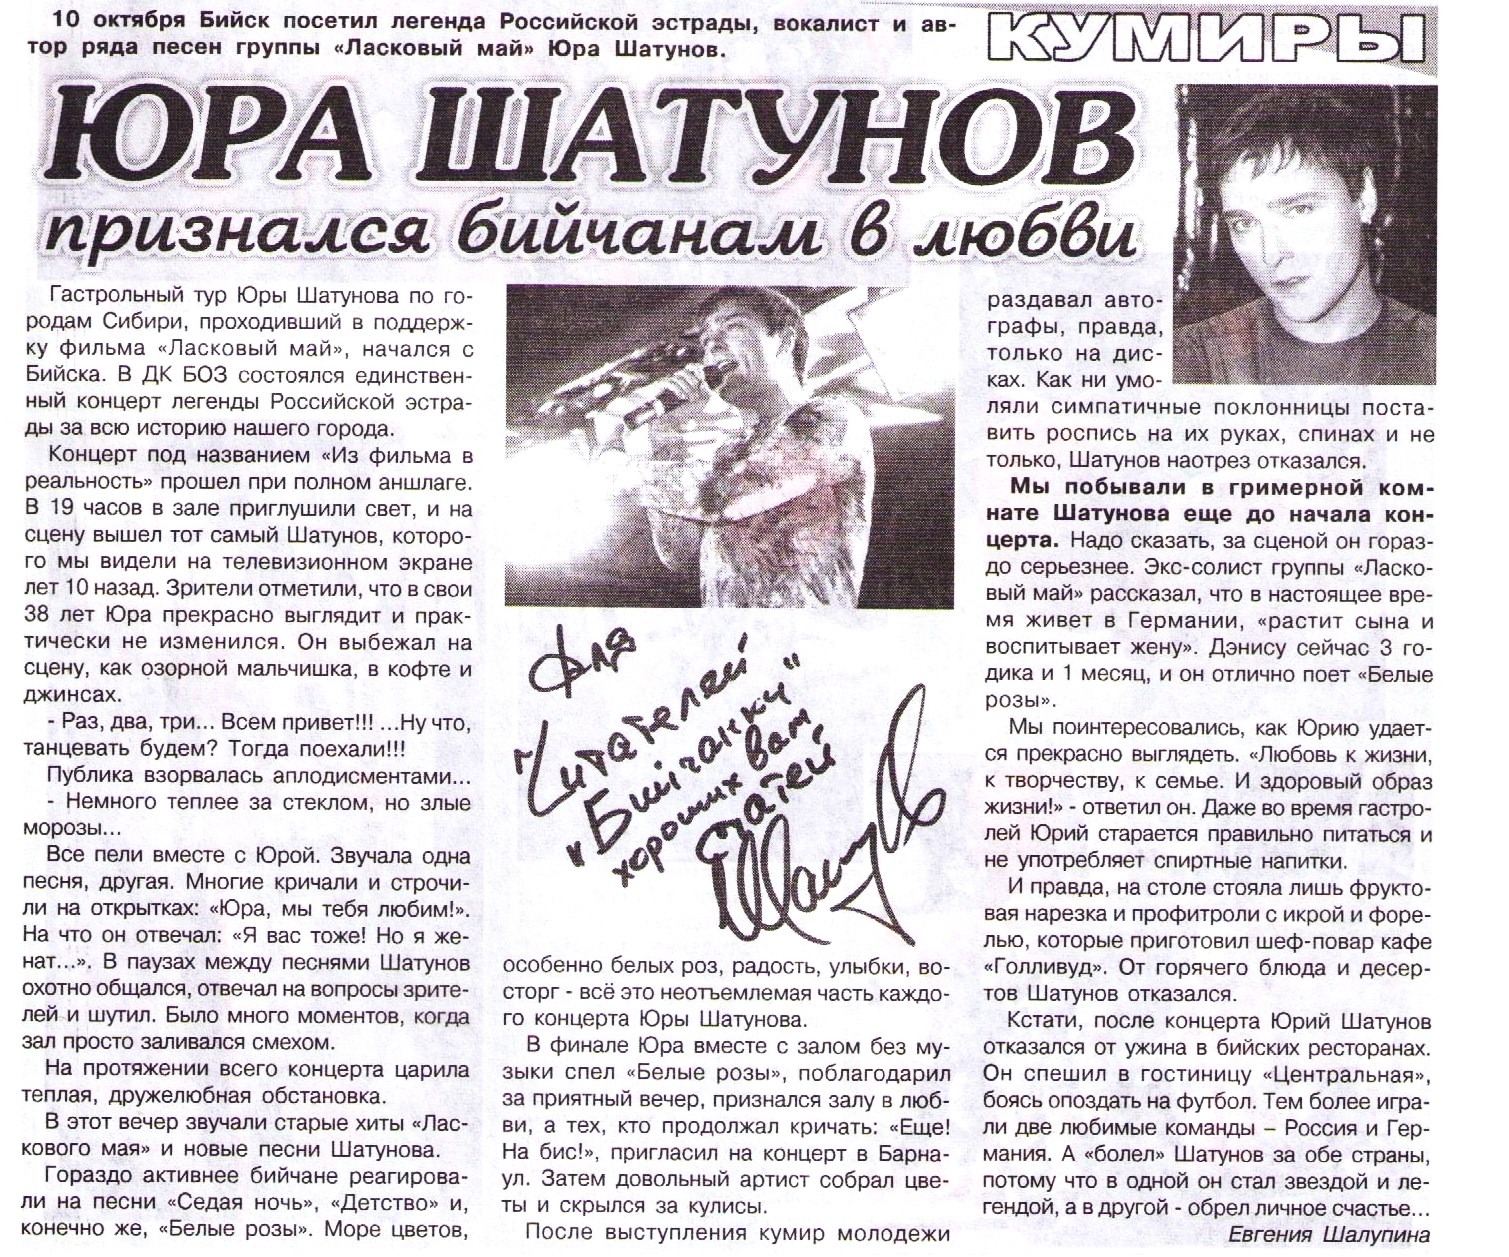 10 октября Бийск посетил легенда Российской эстрады, вокалист и ав-
тор ряда песен группы «Ласковый май» Юра Шатунов.
КУМИРЫ
ЮРА ШАТУНОВ
признался бийчанам в любви
Гастрольный тур Юры Шатунова по го-
родам Сибири, проходивший в поддерж-
ку фильма «Ласковый май», начался с
Бийска. В ДК БОЗ состоялся единствен-
ный концерт легенды Российской эстра-
ды за всю историю нашего города.
Концерт под названием «Из фильма в
реальность» прошел при полном аншлаге.
В 19 часов в зале приглушили свет, и на
сцену вышел тот самый Шатунов, которо-
го мы видели на телевизионном экране
лет 10 назад. Зрители отметили, что в свои
38 лет Юра прекрасно выглядит и прак-
тически не изменился. Он выбежал на
сцену, как озорной мальчишка, в кофте и
джинсах.
- Раз, два, три... Всем привет!!! ...Ну что,
танцевать будем? Тогда поехали!!!
Публика взорвалась аплодисментами...
- Немного теплее за стеклом, но злые
морозы...
Все пели вместе с Юрой. Звучала одна
песня, другая. Многие кричали и строчи-
ли на открытках: «Юра, мы тебя любим!».
На что он отвечал: «Я вас тоже! Но я же-
нат...». В паузах между песнями Шатунов
охотно общался, отвечал на вопросы зрите-
лей и шутил. Было много моментов, когда
зал просто заливался смехом.
На протяжении всего концерта царила
теплая, дружелюбная обстановка.
В этот вечер звучали старые хиты «Лас-
кового мая» и новые песни Шатунова.
Гораздо активнее бийчане реагирова-
ли на песни «Седая ночь», «Детство» и,
конечно же, «Белые розы». Море цветов,
Для
Читателей
"Бийчанки"
хороших вам
статей
Шатунов
особенно белых роз, радость, улыбки, во-
сторг - всё это неотъемлемая часть каждо-
го концерта Юры Шатунова.
В финале Юра вместе с залом без му-
зыки спел «Белые розы», поблагодарил
за приятный вечер, признался залу в люб-
ви, а тех, кто продолжал кричать: «Еще!
На бис!», пригласил на концерт в Барна-
ул. Затем довольный артист собрал цве-
ты и скрылся за кулисы.
После выступления кумир молодежи
раздавал авто-
графы, правда,
только на дис-
ках. Как ни умо-
ляли симпатичные поклонницы поста-
вить роспись на их руках, спинах и не
только, Шатунов наотрез отказался.
Мы побывали в гримерной ком-
нате Шатунова еще до начала кон-
церта. Надо сказать, за сценой он гораз-
до серьезнее. Экс-солист группы «Ласко-
вый май» рассказал, что в настоящее вре-
мя живет в Германии, «растит сына и
воспитывает жену». Дэнису сейчас 3 го-
дика и 1 месяц, и он отлично поет «Белые
розы».
Мы поинтересовались, как Юрию удает-
ся прекрасно выглядеть. «Любовь к жизни,
к творчеству, к семье. И здоровый образ
жизни!» - ответил он. Даже во время гастро-
лей Юрий старается правильно питаться и
не употребляет спиртные напитки.
И правда, на столе стояла лишь фрукто-
вая нарезка и профитроли с икрой и форе-
лью, которые приготовил шеф-повар кафе
«Голливуд». От горячего блюда и десер-
тов Шатунов отказался.
Кстати, после концерта Юрий Шатунов
отказался от ужина в бийских ресторанах.
Он спешил в гостиницу «Центральная»,
боясь опоздать на футбол. Тем более игра-
ли две любимые команды – Россия и Гер-
мания. А «болел» Шатунов за обе страны,
потому что в одной он стал звездой и ле-
гендой, а в другой - обрел личное счастье...
Евгения Шалупина